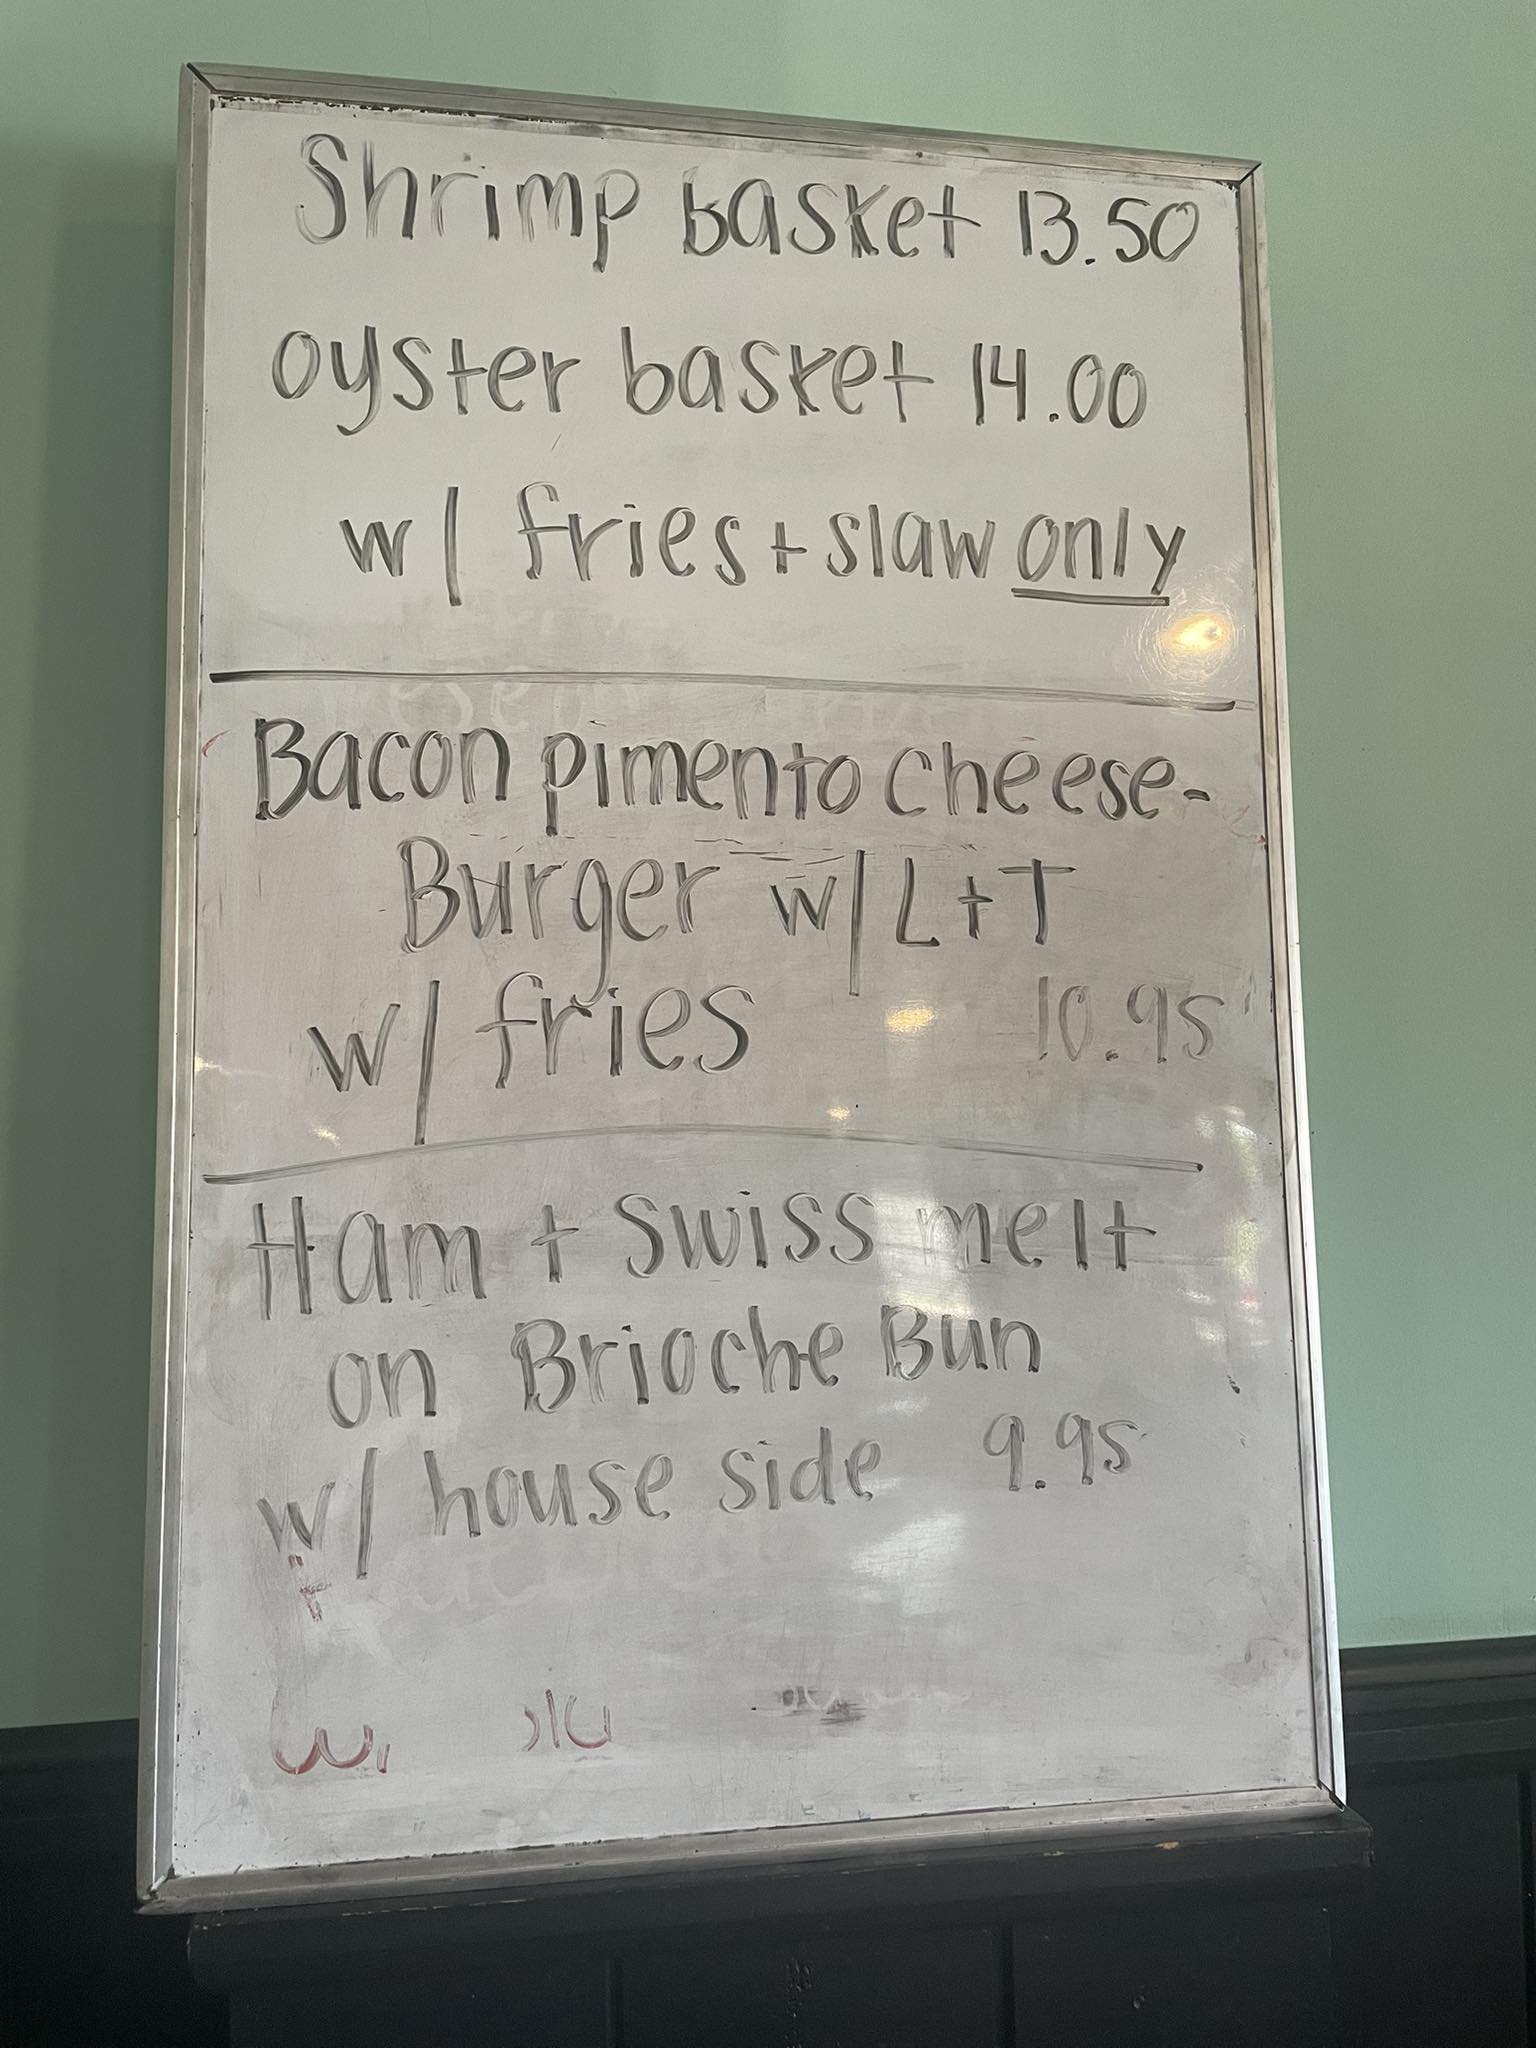 Shrimp basket 13.50
oyster basket 14.00
w/ fries + slaw only
Bacon pimento cheese-
Burger w/ L + T
w/ fries 10.95
Ham + Swiss melt
on Brioche Bun
w/ house side 9.95